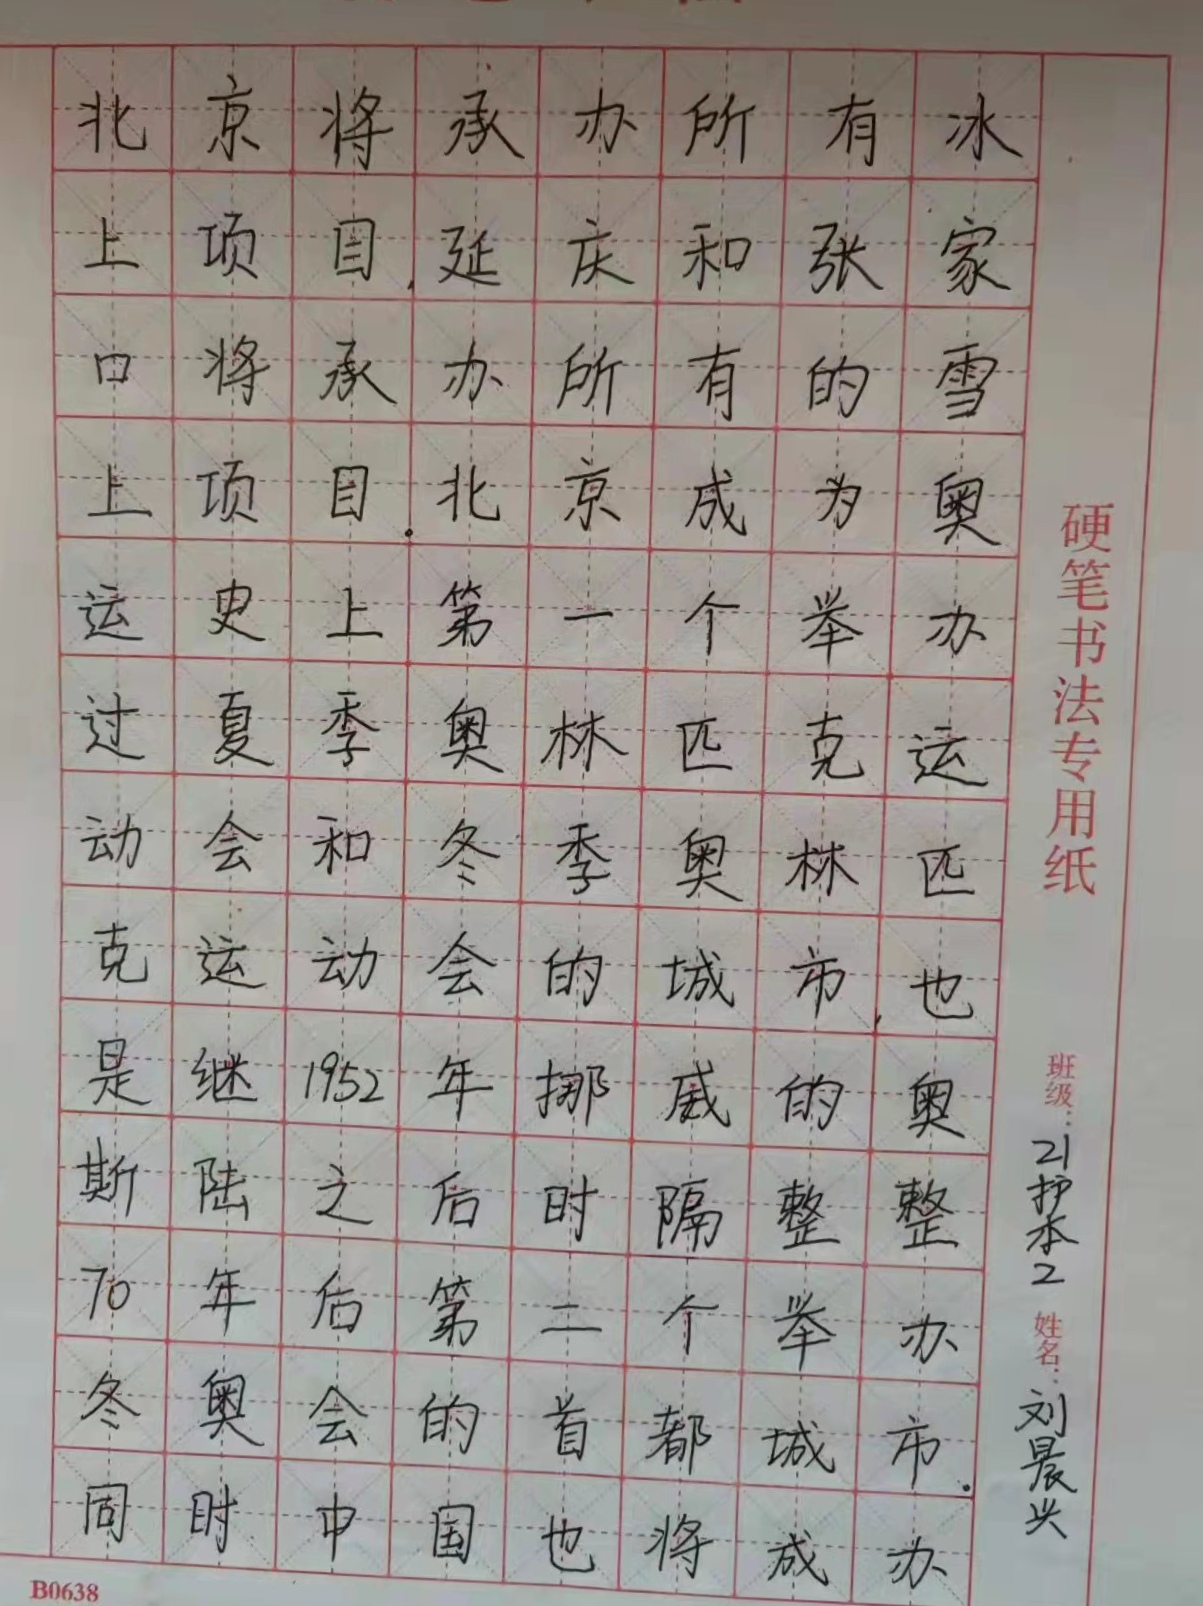 北京将承办所有冰
上项目,延庆和张家
口将承办所有的雪
上项目.北京成为奥
运史上第一个举办
过夏季奥林匹克运
动会和冬季奥林匹
克运动会的城市,也
是继1952年挪威的奥
斯陆之后时隔整整
70年后第二个举办
冬奥会的首都城市.
同时中国也将成办
硬笔书法专用纸
班级:21护本2 姓名:刘晨兴
B0638